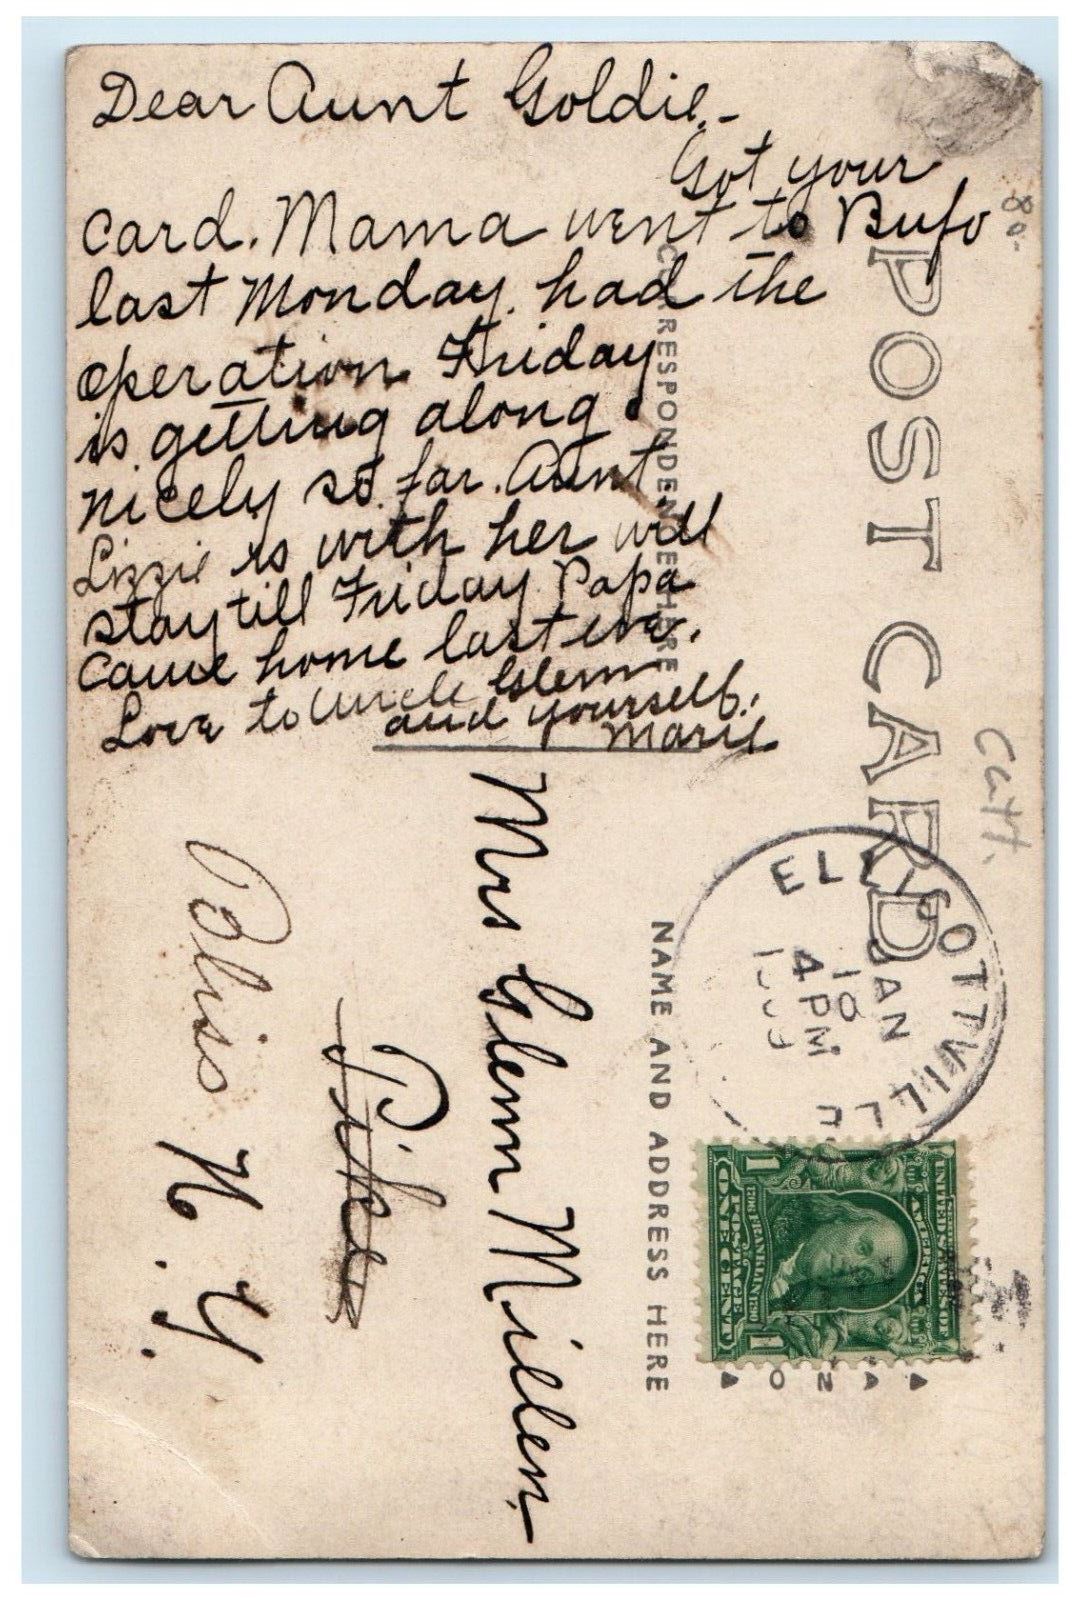 Dear Aunt Goldie,-
Got your
card. Mama went to Bufo
last Monday. had the
operation Friday
is getting along
nicely so far. Aunt
Lizzie is with her will
stay till Friday Papa
came home last eve.
Love to Uncle Glenn
and yourself.
Marie
POST CARD
CORRESPONDENCE HERE
NAME AND ADDRESS HERE
Mrs Glenn Millen
Pike
Bliss N.Y.
ELLICOTTVILLE
JAN
10
4 PM
80-
Catt.
UNITED STATES OF AMERICA
FRANKLIN
POSTAGE
1 ONE CENT 1